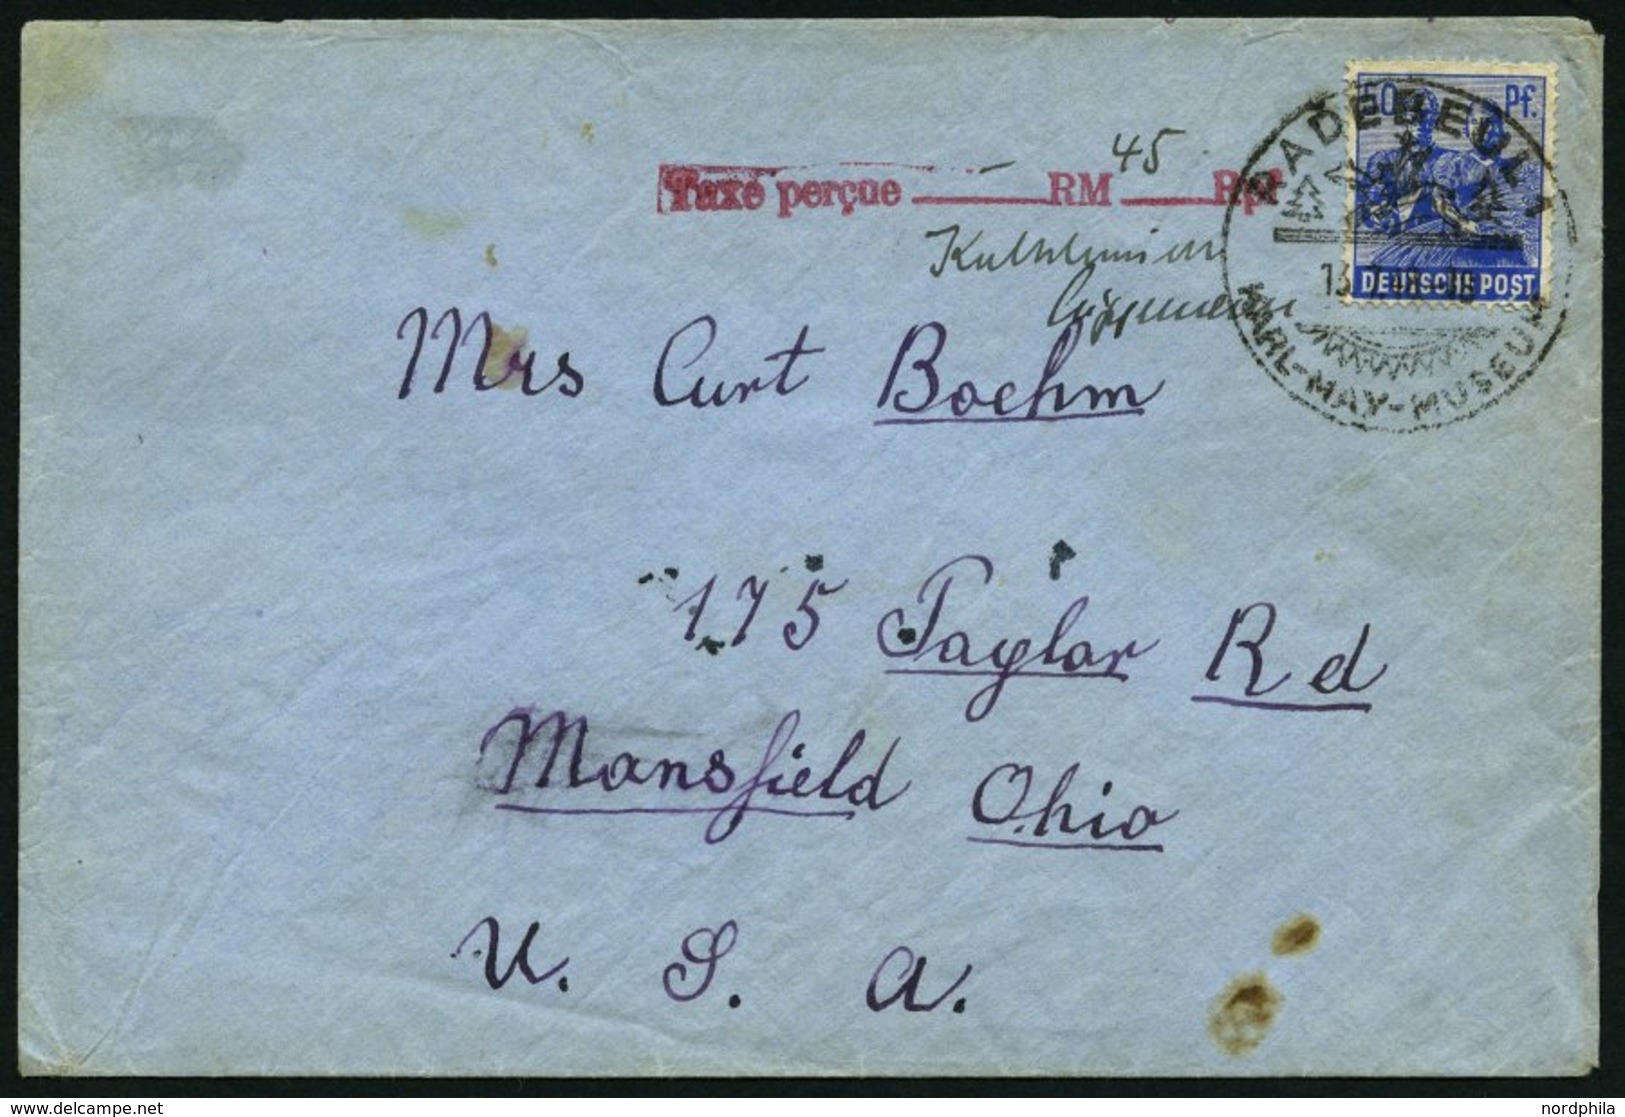 50 Pf.
RADEBEUL 1
45
Taxe perçue — RM Rpf
DEUTSCHE POST
KARL-MAY-MUSEUM
Mrs Curt Boehm
175 Taylor Rd
Mansfield Ohio
U. S. A.
delcampe.net
nordphila